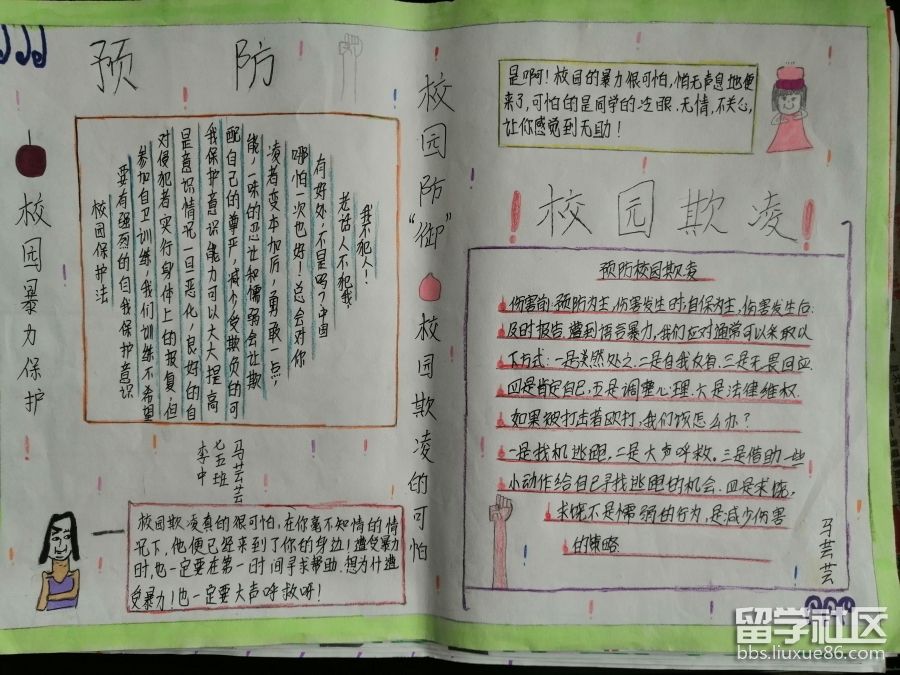 预防
校园暴力保护
校园保护法
要有强烈的自我保护意识
参加自卫训练，我们训练不希望
对侵犯者实行身体上的报复，但
是意识情况一旦恶化，良好的自
我保护意识能力可以大大提高
配自己的尊严，减少受欺负的可
能，一味的忍让和懦弱会让欺
凌者变本加厉，勇敢一点，
哪怕一次也好！总会对你
有好处，不是吗？中国
老话人不犯我，
我不犯人！
马芸芸
七五班
李中
校园欺凌真的很可怕，在你毫不知情的情
况下，他便已经来到了你的身边！遭受暴力
时，也一定要在第一时间寻找帮助．想为什遭
受暴力！也一定要大声呼救呀！
校园防“御”
校园欺凌的可怕
是啊！校园的暴力很可怕，怕无声息地便
来了，可怕的是同学的冷眼．无情，不关心，
让你感觉到无助！
！校园欺凌！
预防校园欺凌
伤害前：预防为主，伤害发生时：自保为主，伤害发生后：
及时报告 遭到语言暴力，我们应对通常可以采取以
下方式：一是淡然处之．二是自我反省．三是无畏回应．
四是肯定自己．五是调整心理．六是法律维权．
如果被打击者殴打，我们该怎么办？
一是找机逃跑，二是大声呼救。三是借助一些
小动作给自己寻找逃跑的机会．四是求饶，
求饶不是懦弱的行为，是减少伤害
的策略．
马芸芸
留学社区
bbs.liuxue86.com